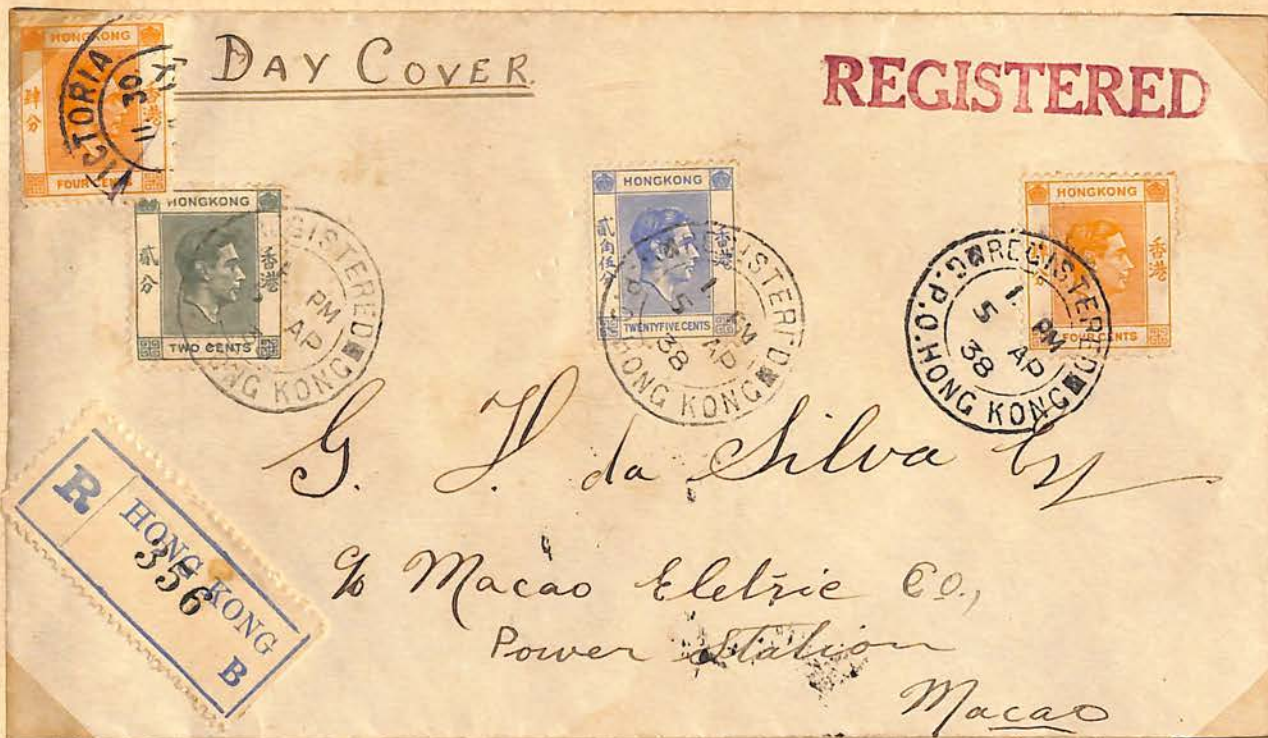 HONGKONG
肆分
香港
FOUR CENTS
VICTORIA
11.30
DAY COVER.
REGISTERED
HONGKONG
貳分
香港
TWO CENTS
REGISTERED
PM
AP
HONG KONG
HONGKONG
貳角伍分
香港
TWENTYFIVE CENTS
REGISTERED
1 PM
5 AP
38
G.P.O. HONG KONG
HONGKONG
香港
FOUR CENTS
REGISTERED
1 PM
5 AP
38
G.P.O. HONG KONG
G. da Silva Esq
c/o Macao Eletric Co.,
Power Station
Macao
R HONG KONG
356
B